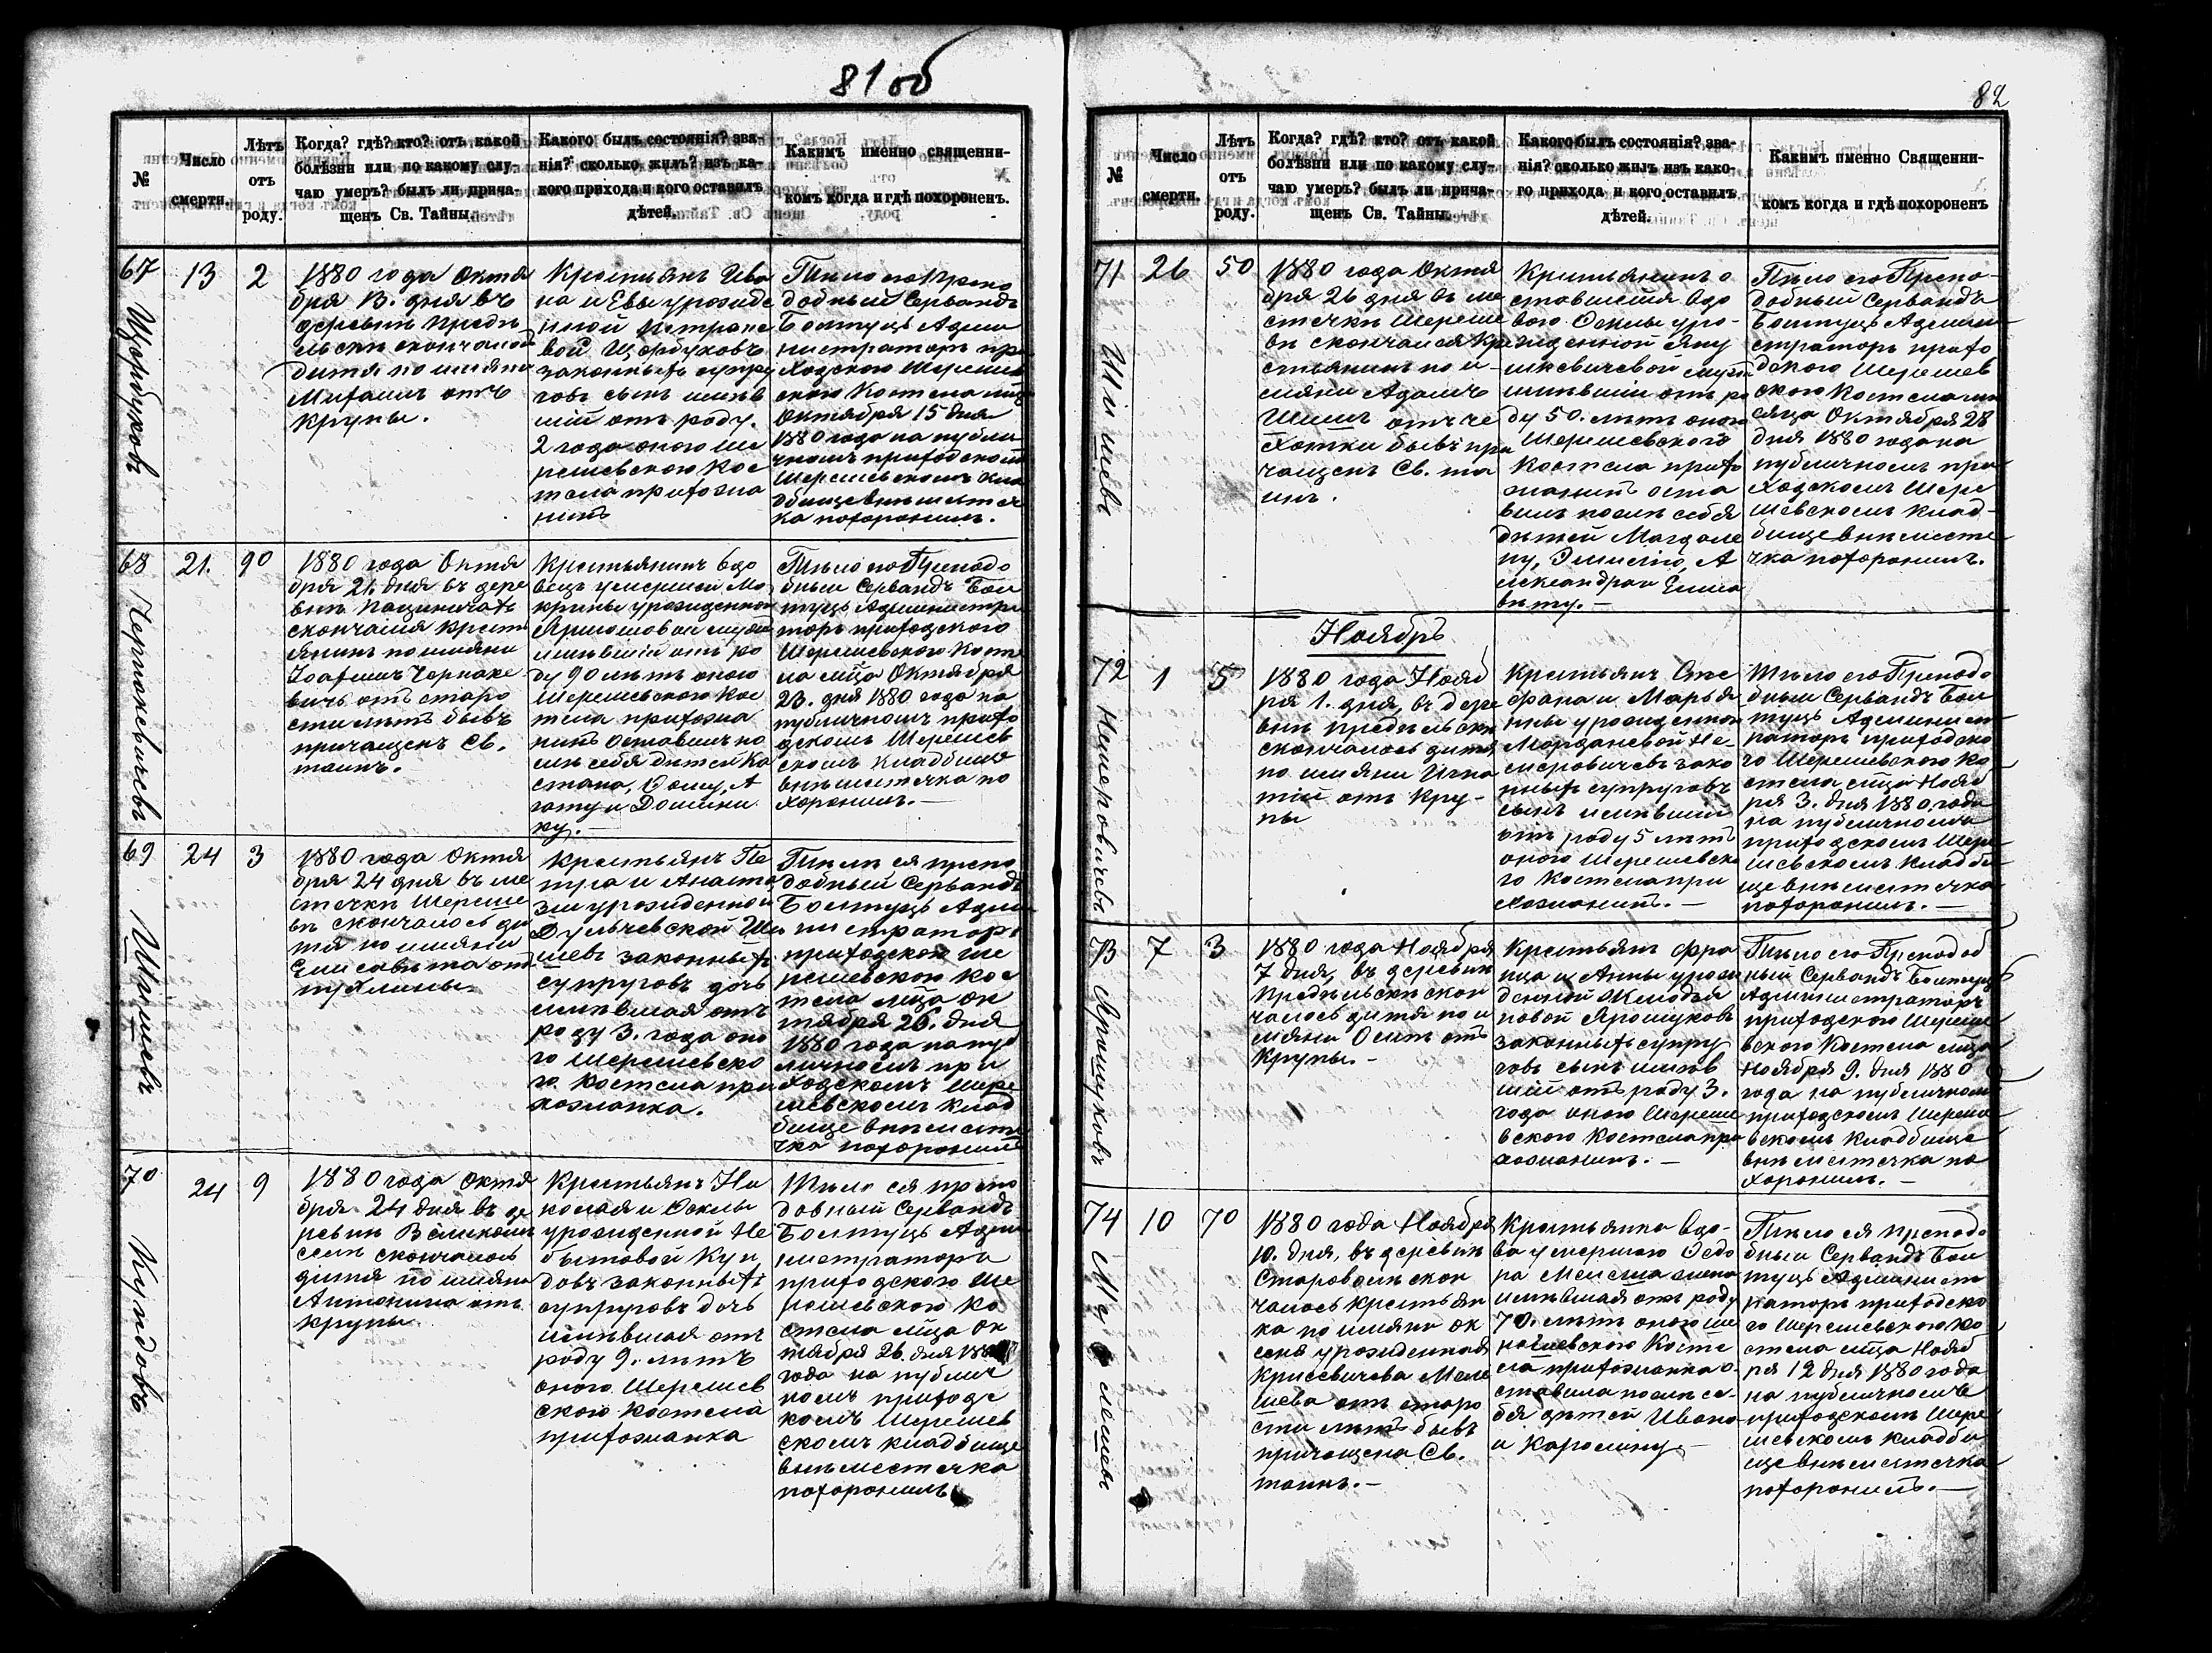 81 об
№
Число
смерти.
Лѣтъ
отъ
роду.
Когда? гдѣ? кто? отъ какой
болѣзни или по какому слу-
чаю умеръ? былъ ли прича-
щенъ Св. Тайнъ.
Какого былъ состоянія? зва-
нія? сколько жилъ? изъ ка-
кого прихода и кого оставилъ
дѣтей.
Какимъ именно священни-
комъ когда и гдѣ похороненъ.
67
Щорбуковъ
13
2
1880 года Октя
бря 13. дня въ
деревнѣ Предѣ
льскѣ скончалось
дитя по имяни
Михаилъ отъ
крупы.
Крестьянъ Ива
на и Евы урожде
нной Петраке
вой Щорбуковъ
законныхъ супру
говъ сынъ имѣв
шій отъ роду.
2 года оного Ше
решевского Кос
тела прихожа
нинъ
Тѣло его Препо
добный Сервандъ
Болтуць Адми
нистраторъ при
ходского Шерешев
ского Костела мца
Октября 15 дня
1880 года на публи
чномъ приходскомъ
Шерешевскомъ кла
дбище внѣ местеч
ка похоронилъ.
68
Чернакевичевъ
21.
90
1880 года Октя
бря 21. дня въ дере
внѣ Пациничахъ
скончался крестъ
янинъ по имяни
Іоахимъ Чернаке
вичъ отъ старо
сти лѣтъ бывъ
причащенъ Св.
таинъ.
Крестьянинъ вдо
вецъ умершей Ма
крины урожденной
имѣвшій отъ ро
ду 90 лѣтъ оного
Шерешевского Кос
тела прихожа
нинъ оставилъ по
слѣ себя дѣтей Ка
гату и Домини
ку.—
Тѣло его Преподо
бный Сервандъ Бол
туць Администра
торъ приходского
Шерешевского Косте
ла мца Октября
23. дня 1880 года на
публичномъ прихо
дскомъ Шерешев
скомъ кладбище
внѣ местечка по
хоронилъ.—
69
Шишевъ
24
3
1880 года Октя
бря 24 дня въ ме
стечкѣ Шереше
вѣ скончалось ди
тя по имяни
Елисавета отъ
пухлины.
Крестьянъ Пе
тра и Анаста
зіи урожденной
Дульчевской Ши
шевъ законныхъ
супруговъ дочь
имѣвшая отъ
роду 3. года оно
го Шерешевско
го Костела при
хожанка.
Тѣло ея препо
добный Сервандъ
Болтуць Адми
нистраторъ
приходского Ше
решевского Кос
тела мца Ок
тября 26. дня
1880 года на пуб
личномъ при
ходскомъ Шере
шевскомъ клад
бище внѣ месте
чка похоронилъ
70
Кундовъ
24
9
1880 года Октя
бря 24 дня въ де
ревнѣ Великомъ
селѣ скончалось
дитя по имяни
Антонина отъ
крупы.
Крестьянъ Ни
колая и Феклы
урожденной Не
бытовой Кун
довъ законныхъ
супруговъ дочь
имѣвшая отъ
роду 9. лѣтъ
оного Шерешев
ского Костела
прихожанка
Тѣло ея препо
добный Сервандъ
Болтуць Адми
нистраторъ
приходского Ше
решевского Ко
стела мца Ок
тября 26. дня
года на публич
номъ приходс
комъ Шерешев
скомъ кладбище
внѣ местечка
похоронилъ
82
№
Число
смерти.
Лѣтъ
отъ
роду.
Когда? гдѣ? кто? отъ какой
болѣзни или по какому слу-
чаю умеръ? былъ ли прича-
щенъ Св. Тайнъ.
Какого былъ состоянія? зва-
нія? сколько жилъ изъ како-
го прихода и кого оставилъ
дѣтей.
Какимъ именно Священни-
комъ когда и гдѣ похороненъ
71
Шишевъ
26
50
1880 года Октя
бря 26 дня въ ме
стечкѣ Шереше
вѣ скончался кре
стьянинъ по и-
мяни Адамъ
Шишъ отъ че
хотки бывъ при
чащенъ Св. та
инъ.
Крестьянинъ о
ставившій вдо
вою Феклу уро-
жденной Яну
шкевичевой
имѣвшій отъ ро
ду 50. лѣтъ оного
Шерешевского
Костела прихо
жанинъ оста
вилъ послѣ себя
дѣтей Магдале
ну, Эмилію, А
лександра и Елиса
вету.—
Тѣло его Препо-
добный Сервандъ
Болтуць Админи
страторъ прихо
дского Шерешев
ского Костела мѣ
сяца Октября 28
дня 1880 года на
публичномъ при
ходскомъ Шере
шевскомъ клад-
бище внѣ месте
чка похоронилъ.
Ноябрь
72
Немеровичевъ
1
5
1880 года Нояб
ря 1. дня, въ дере
внѣ Предѣльскѣ
скончалось дитя
по имяни Игна
тій отъ кру-
пы
Крестьянъ Сте
фана и Марья
нны урожденной
Мордачевой Не-
меровичевъ зако
нныхъ супруговъ
сынъ имѣвшій
отъ роду 5 лѣтъ
оного Шерешевско
го Костела при
хожанинъ.—
Тѣло его Преподо
бный Сервандъ Бол
туць Админист
раторъ приходско
го Шерешевского Ко
стела мца Нояб
ря 3. дня 1880. года
на публичномъ
приходскомъ Шере
шевскомъ кладби
ще внѣ местечка
похоронилъ.—
73
Ярошуковъ
7
3
1880 года Ноября
7 дня, въ деревнѣ
Предѣльскѣ скон
чалось дитя по и
мяни Осипъ отъ
крупы.-
Крестьянъ Фра
нца и Анны урож
денной
новой Ярошуковъ
законныхъ супру
говъ сынъ имѣв
шій отъ роду 3.
года оного Шереше
вского Костела при
хожанинъ.—
Тѣло его Преподоб
ный Сервандъ Болтуць
Администраторъ
приходского Шереше
вского Костела мца
Ноября 9. дня 1880
года на публичномъ
приходскомъ Шереше
вскомъ кладбище
внѣ местечка по
хоронилъ.—
74
10
70
1880 года Ноября
10. дня, въ деревнѣ
Староволѣ скон
чалось крестьян
ка по имяни Ок
сеня урожденная
Крисевичева Меле
шева отъ старо
сти лѣтъ бывъ
причащена Св.
таинъ.—
Крестьянка вдо-
ва умершого Федо
ра
имѣвшая отъ роду
70. лѣтъ оного Ше
решевского Косте
ла прихожанка о-
ставила послѣ се-
бя дѣтей Ивана
и Каролину.—
Тѣло ея преподо
бный Сервандъ Бол
туць Администр
раторъ приходско
го Шерешевского Ко
стела мца Нояб
ря 12 дня 1880 года
на публичномъ
приходскомъ Шере
шевскомъ кладби
ще внѣ местечка
похоронилъ.—